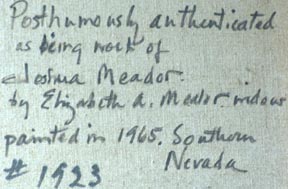 Posthumously authenticated
as being work of
Joshua Meador.
by Elizabeth A. Meador widow
painted in 1965. Southern
Nevada
# 1923